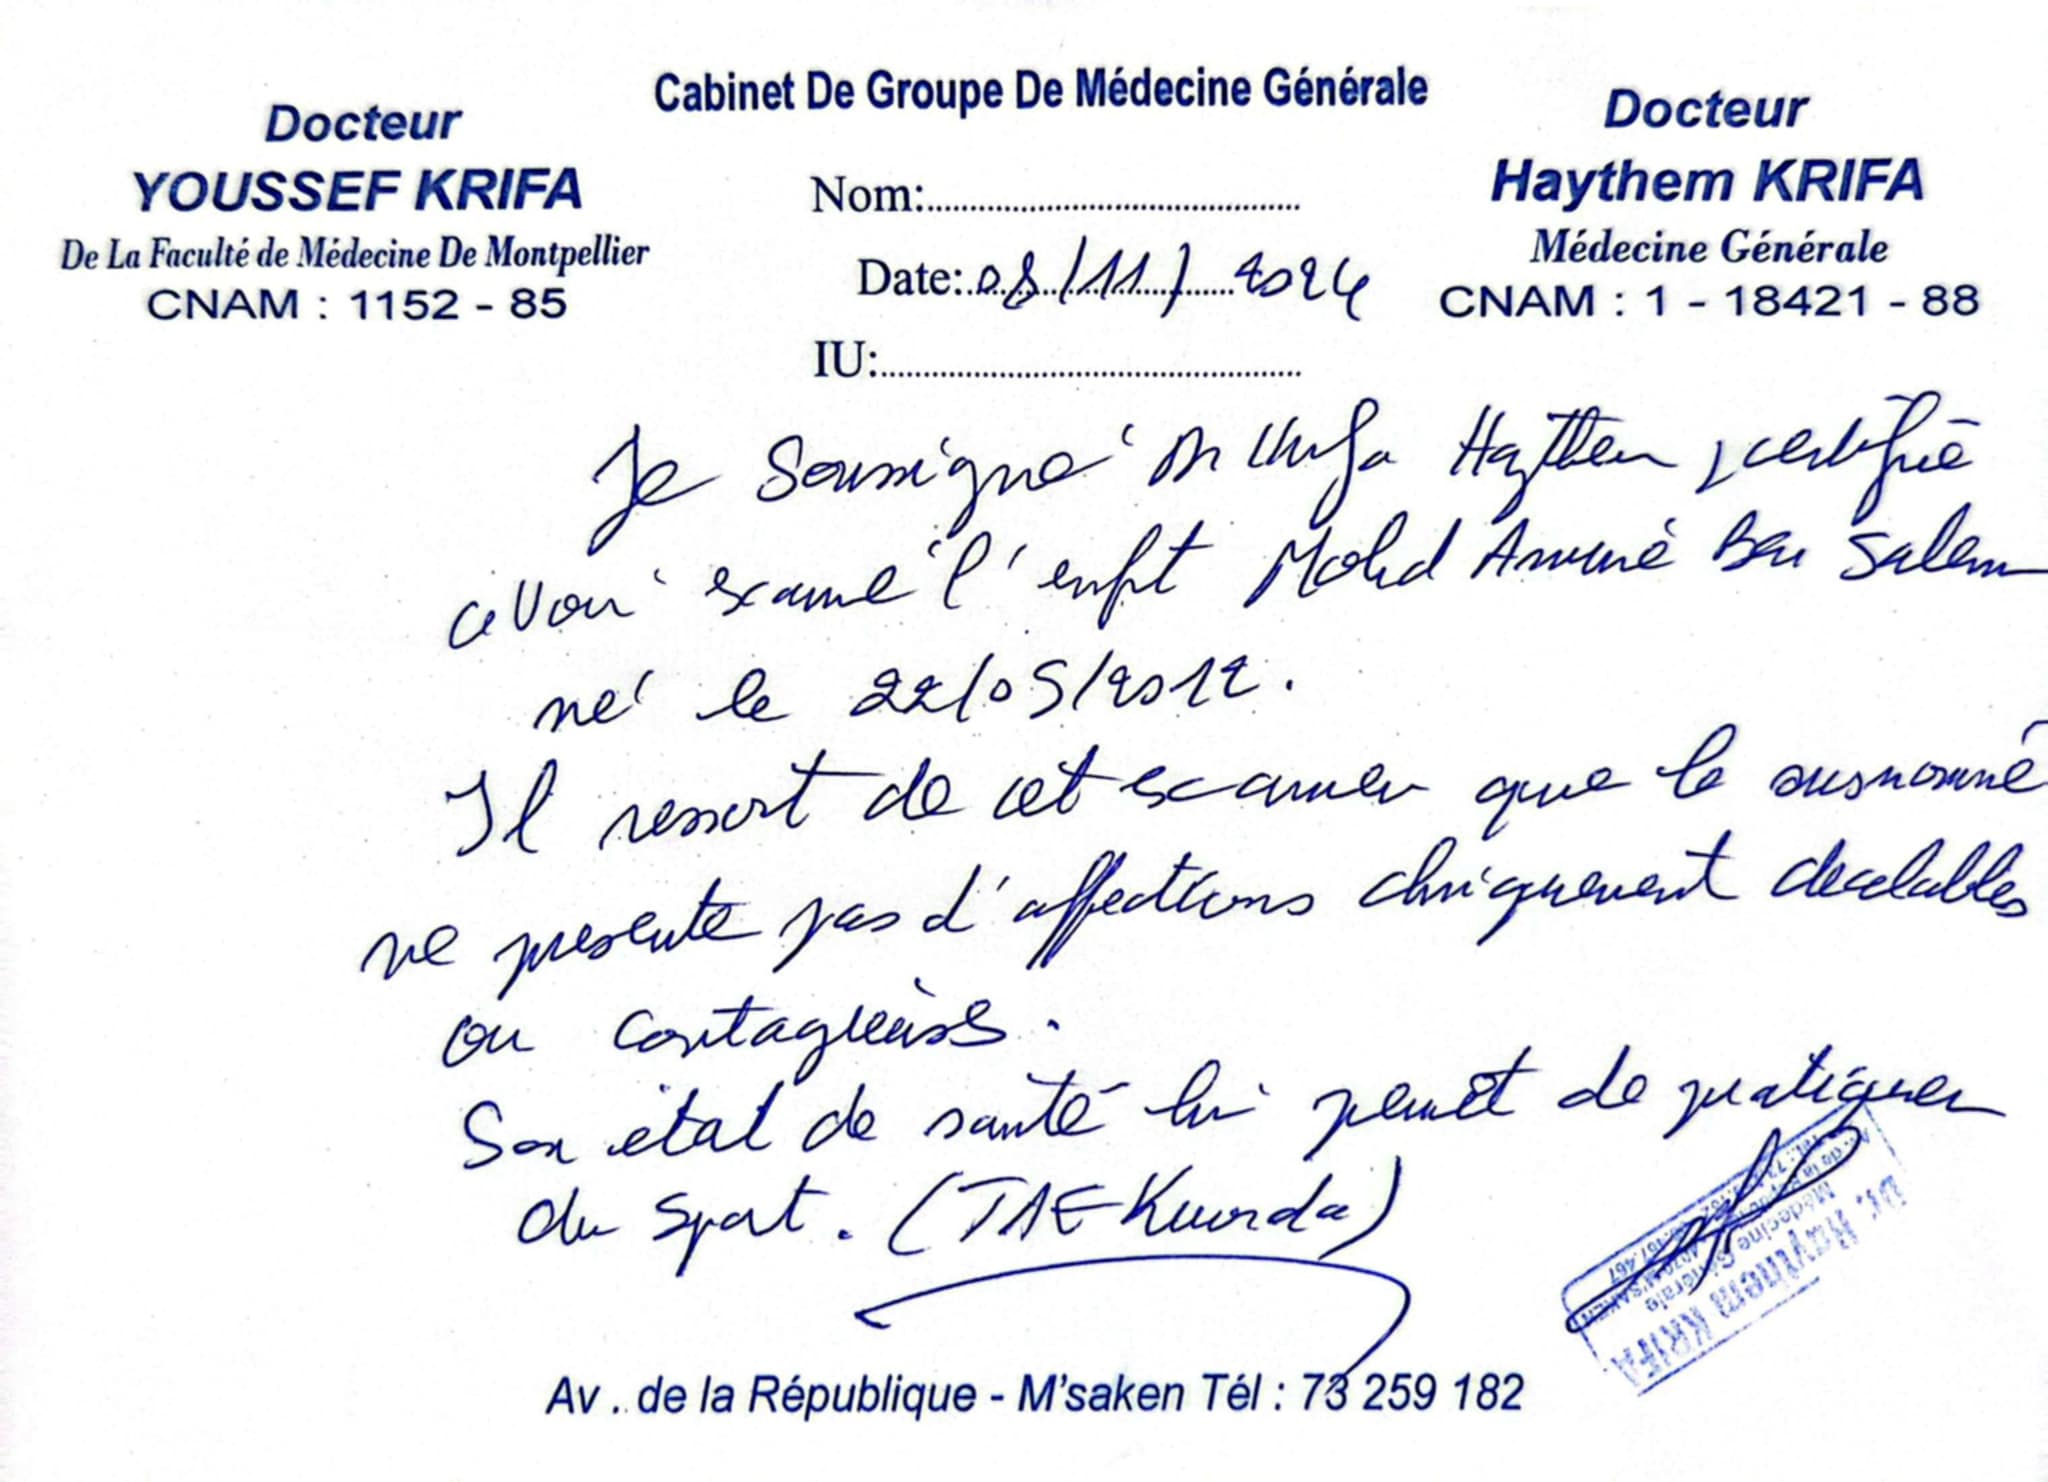 Cabinet De Groupe De Médecine Générale
Docteur
YOUSSEF KRIFA
De La Faculté de Médecine De Montpellier
CNAM : 1152 - 85
Nom:
Date: 08/11/2024
IU:
Docteur
Haythem KRIFA
Médecine Générale
CNAM : 1 - 18421 - 88
Je soussigné Dr Krifa Haythem certifie
avoir examé l'enft Mohd Amine Ben Salem
né le 22/05/2012.
Il ressort de cet examen que le susnommé
ne présente pas d'affections cliniquement décelables
ou contagieuses.
Son état de santé lui permet de pratiquer
du sport. (TAEKwonda)
Dr. Haythem KRIFA
Médecine Générale
Av . de la République - M'saken Tél : 73 259 182